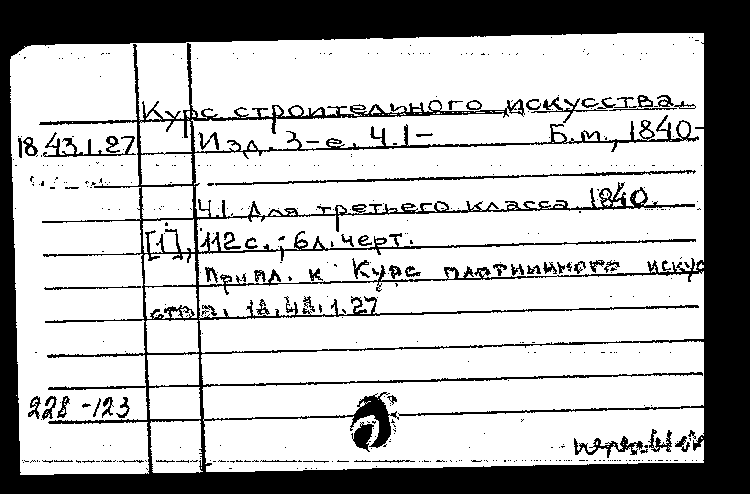 Курс строительного искусства.
18.43.1.27 Изд. 3-е. Ч.1- Б.м., 1840-
Ч.1. Для третьего класса. 1840.
[1], 112 с.; 6 л. черт.
Припл. к Курс плотничного искус
ства. 18.43.1.27
228-123